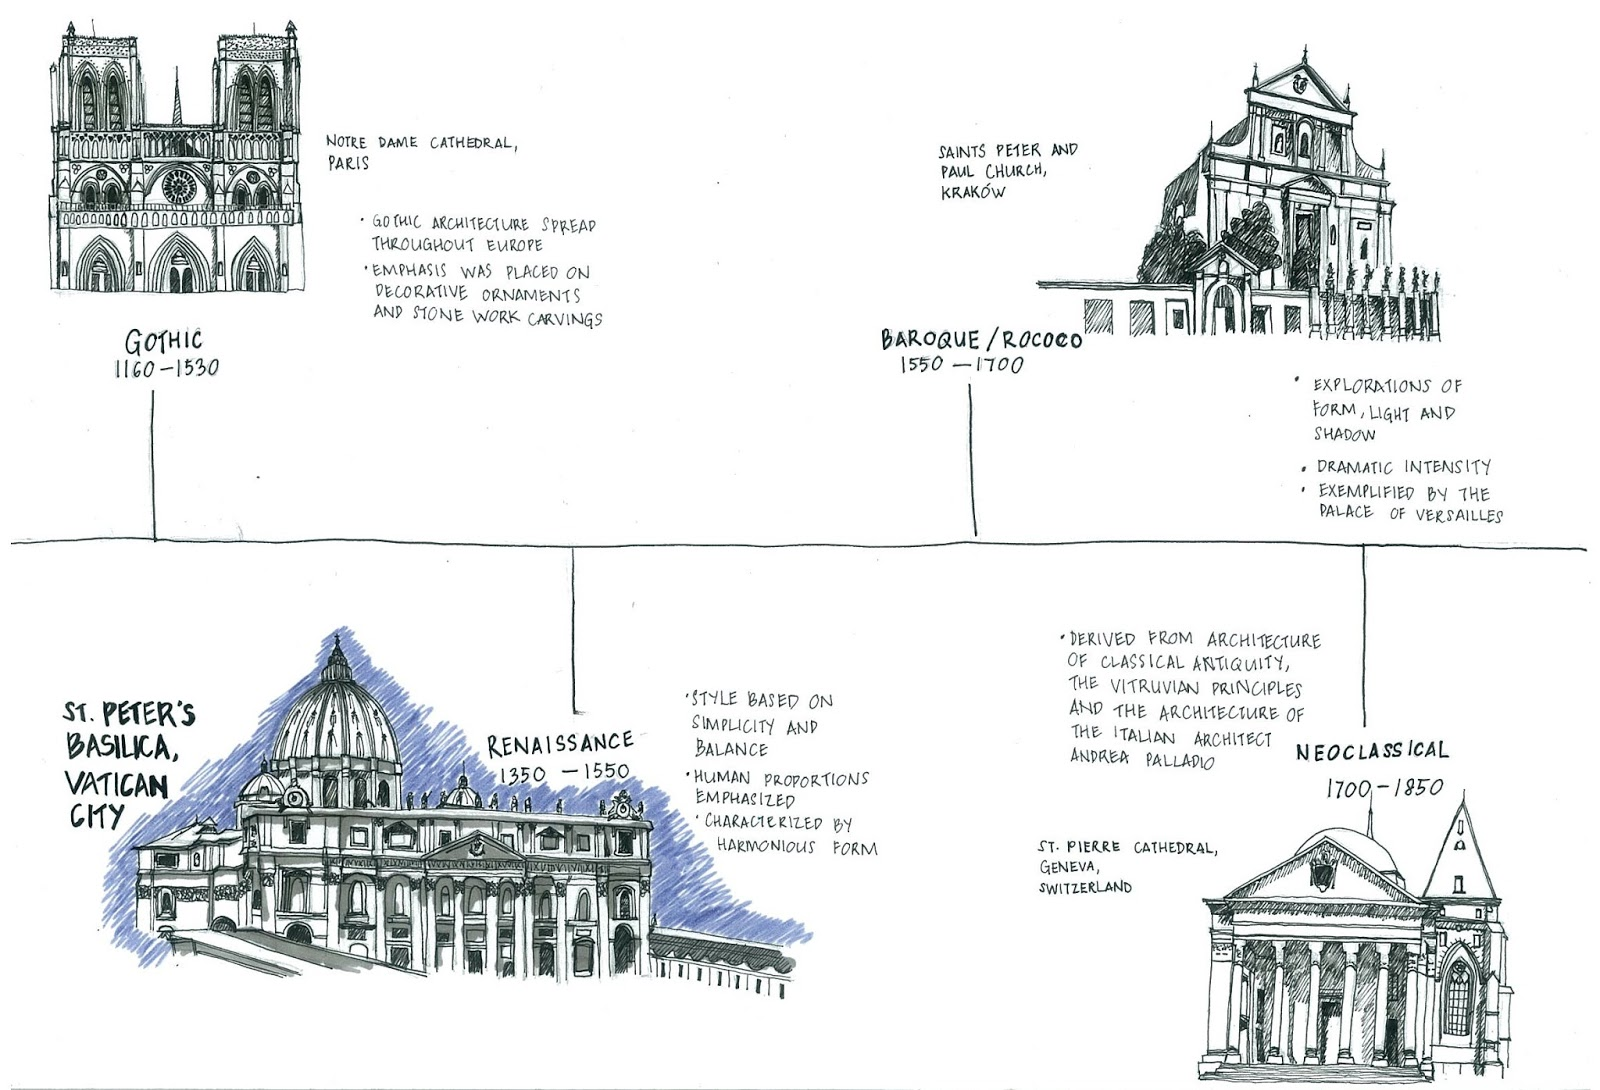 NOTRE DAME CATHEDRAL,
PARIS
· GOTHIC ARCHITECTURE SPREAD
THROUGHOUT EUROPE
· EMPHASIS WAS PLACED ON
DECORATIVE ORNAMENTS
AND STONE WORK CARVINGS
GOTHIC
1160 – 1530
SAINTS PETER AND
PAUL CHURCH,
KRAKÓW
BAROQUE / ROCOCO
1550 – 1700
· EXPLORATIONS OF
FORM, LIGHT AND
SHADOW
· DRAMATIC INTENSITY
· EXEMPLIFIED BY THE
PALACE OF VERSAILLES
ST. PETER'S
BASILICA,
VATICAN
CITY
RENAISSANCE
1350 – 1550
· STYLE BASED ON
SIMPLICITY AND
BALANCE
· HUMAN PROPORTIONS
EMPHASIZED
· CHARACTERIZED BY
HARMONIOUS FORM
· DERIVED FROM ARCHITECTURE
OF CLASSICAL ANTIQUITY,
THE VITRUVIAN PRINCIPLES
AND THE ARCHITECTURE OF
THE ITALIAN ARCHITECT
ANDREA PALLADIO
NEOCLASSICAL
1700 – 1850
ST. PIERRE CATHEDRAL,
GENEVA,
SWITZERLAND